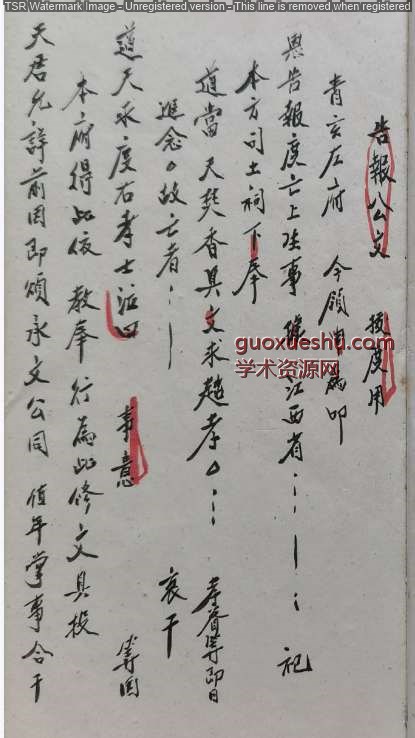 TSR Watermark Image - Unregistered version - This line is removed when registered
告報公文 授度用
青玄左府 今領
與告報度亡上生事 江西省 祀
本方司土祠下奉
道當天焚香具文求超孝 孝眷等即日
追念故亡者 哀干
道天永度右孝士 事意 等因
本府得此依教奉行為此修文具投
天君允詳前因即頒承文公同 值年掌事合干
guoxueshu.com
学术资源网